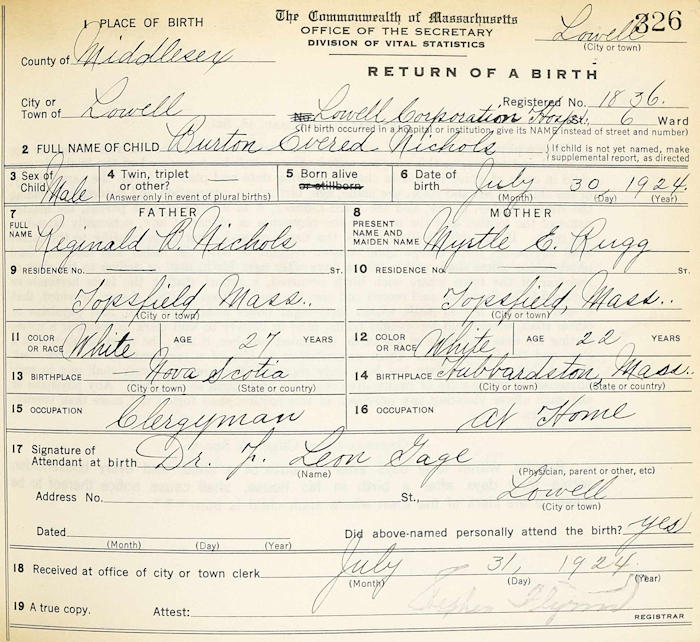 1 PLACE OF BIRTH
The Commonwealth of Massachusetts
326
OFFICE OF THE SECRETARY
Lowell
DIVISION OF VITAL STATISTICS
(City or town)
County of Middlesex
RETURN OF A BIRTH
City or
Town of Lowell
Registered No. 1836.
No. Lowell Corporation Hosp. St. 6 Ward
(If birth occurred in a hospital or institution, give its NAME instead of street and number)
2 FULL NAME OF CHILD Burton Evered Nichols
If child is not yet named, make
supplemental report, as directed
3 Sex of
Child Male
4 Twin, triplet
or other?
(Answer only in event of plural births)
5 Born alive
or stillborn
6 Date of
birth July 30, 1924
(Month) (Day) (Year)
7 FATHER
FULL
NAME Reginald B. Nichols
8 MOTHER
PRESENT
NAME AND
MAIDEN NAME Myrtle E. Rugg
9 RESIDENCE No. ST.
Topsfield, Mass..
(City or town)
10 RESIDENCE No. ST.
Topsfield, Mass..
(City or town)
11 COLOR
OR RACE White AGE 27 YEARS
12 COLOR
OR RACE White AGE 22 YEARS
13 BIRTHPLACE — Nova Scotia
(City or town) (State or country)
14 BIRTHPLACE Hubbardston, Mass..
(City or town) (State or country)
15 OCCUPATION Clergyman
16 OCCUPATION at Home
17 Signature of
Attendant at birth Dr. F. Leon Gage
(Name)
(Physician, parent or other, etc)
Address No. St., Lowell
(City or town)
Dated
(Month) (Day) (Year)
Did above-named personally attend the birth? yes
18 Received at office of city or town clerk July 31, 1924
(Month) (Day) (Year)
19 A true copy. Attest: Stephen Flynn
REGISTRAR